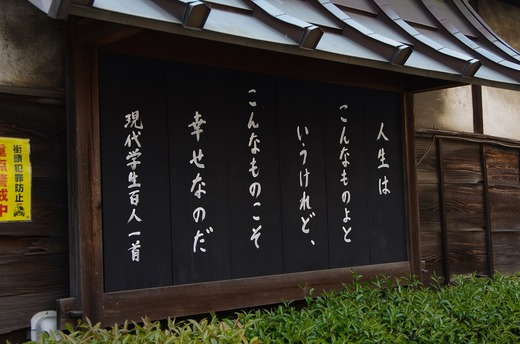 人生は
こんなものよと
いうけれど、
こんなものこそ
幸せなのだ
現代学生百人一首
街頭犯罪防止
重点警戒中